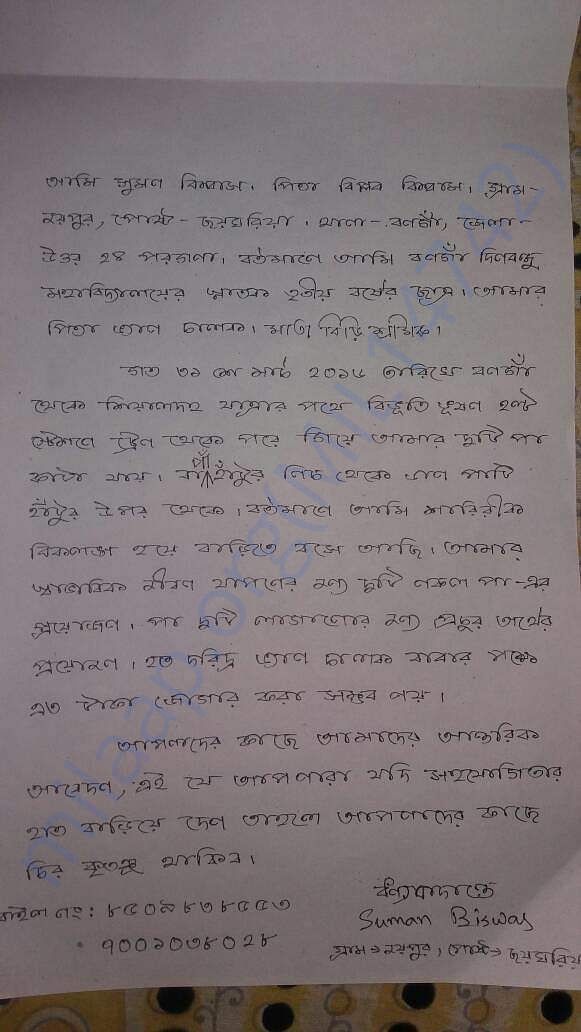 আমি সুমন বিশ্বাস। পিতা বিপ্লব বিশ্বাস। গ্রাম-
নয়পুর, পোষ্ট - জয়ঘরিয়া। থানা - বনগাঁ, জেলা -
উত্তর ২৪ পরগনা। বর্তমানে আমি বনগাঁ দিনবন্ধু
মহাবিদ্যালয়ের স্নাতক তৃতীয় বর্ষের ছাত্র। আমার
পিতা ভ্যান চালক। মাতা বিড়ি শ্রমিক।
গত ৩১ শে মার্চ ২০১৬ তারিখে বনগাঁ
থেকে শিয়ালদহ যাত্রার পথে বিভূতি ভূষণ হল্ট
স্টেশনে ট্রেন থেকে পরে গিয়ে আমার দুটি পা
কাটা যায়। বাঁ পা হাঁটুর নিচ থেকে ডান পাটি
হাঁটুর উপর থেকে। বর্তমানে আমি শারিরীক
বিকলাঙ্গ হয়ে বাড়িতে বসে আছি। আমার
স্বাভাবিক জীবন যাপনের জন্য দুটি নকল পা-এর
প্রয়োজন। পা দুটি লাগানোর জন্য প্রচুর অর্থের
প্রয়োজন। হত দরিদ্র ভ্যান চালক বাবার পক্ষে
এত টাকা জোগার করা সম্ভব নয়।
আপনাদের কাছে আমাদের আন্তরিক
আবেদন, এই যে আপনারা যদি সহযোগিতার
হাত বাড়িয়ে দেন তাহলে আপনাদের কাছে
চির কৃতজ্ঞ থাকিব।
ধন্যবাদান্তে
নং: ৮৫০৯৮৩৮৫৫৩
Suman Biswas
৭০০১০৩৮০২৮
গ্রাম → নয়পুর, পোষ্ট → জয়ঘরিয়া
milaap.org(MIL14742)